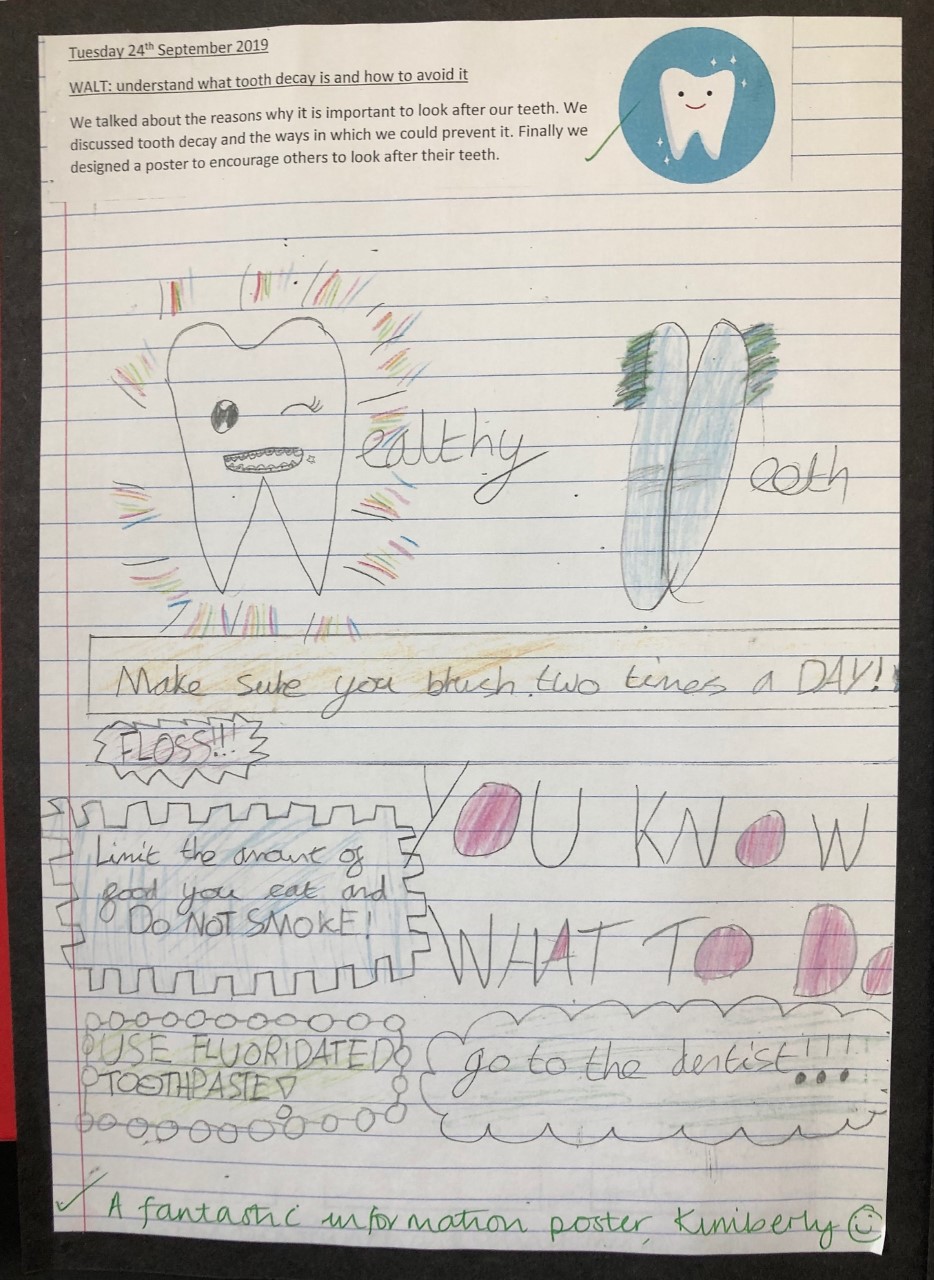 Tuesday 24th September 2019
WALT: understand what tooth decay is and how to avoid it
We talked about the reasons why it is important to look after our teeth. We
discussed tooth decay and the ways in which we could prevent it. Finally we
designed a poster to encourage others to look after their teeth.
ealthy eeth
Make sure you brush two times a DAY!
FLOSS!!!
YOU KNOW
WHAT TO DO
Limit the amount of
food you eat and
DO NOT SMOKE!
USE FLUORIDATED
TOOTHPASTE
go to the dentist!!!
A fantastic information poster Kimberly